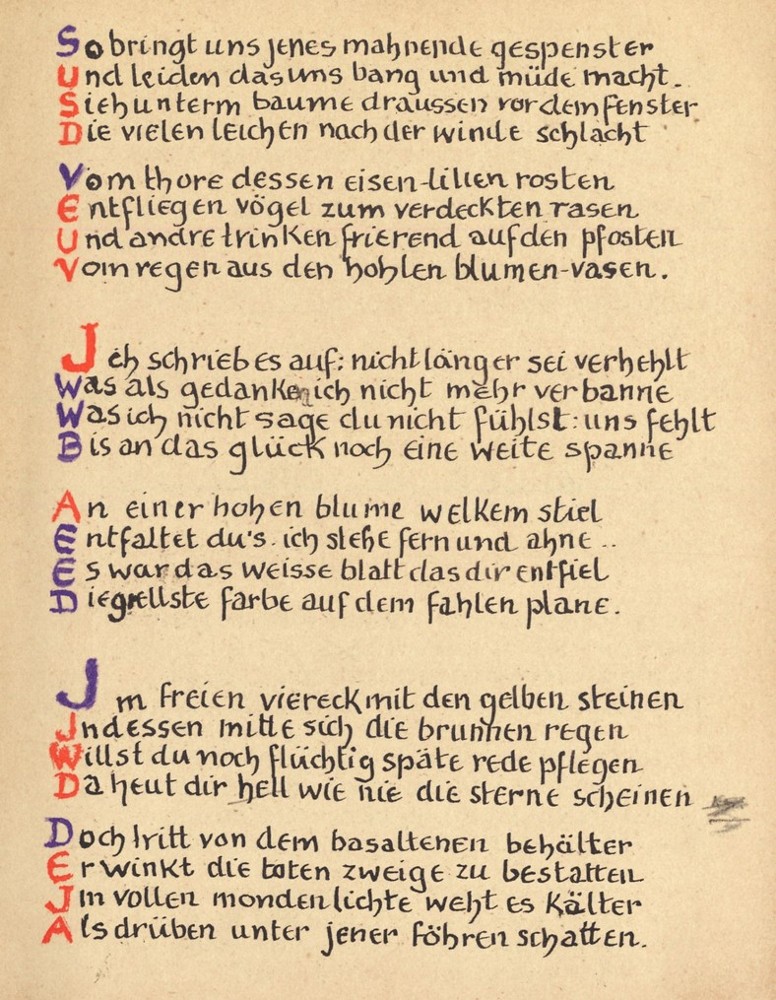 So bringt uns jenes mahnende gespenster
Und leiden das uns bang und müde macht.
Sieh unterm baume draussen vor dem fenster
Die vielen leichen nach der winde schlacht
Vom thore dessen eisen-lilien rosten
Entfliegen vögel zum verdeckten rasen
Und andre trinken frierend auf den pfosten
Vom regen aus den hohlen blumen-vasen.
Ich schrieb es auf: nicht länger sei verhehlt
Was als gedanken ich nicht mehr verbanne
Was ich nicht sage du nicht fühlst: uns fehlt
Bis an das glück noch eine weite spanne
An einer hohen blume welkem stiel
Entfaltet du's. ich stehe fern und ahne ..
Es war das weisse blatt das dir entfiel
Die grellste farbe auf dem fahlen plane.
Im freien viereck mit den gelben steinen
Indessen mitte sich die brunnen regen
Willst du noch flüchtig späte rede pflegen
Da heut dir hell wie nie die sterne scheinen
Doch tritt von dem basaltenen behälter
Er winkt die toten zweige zu bestatten
Im vollen mondenlichte weht es kälter
Als drüben unter jener föhren schatten.